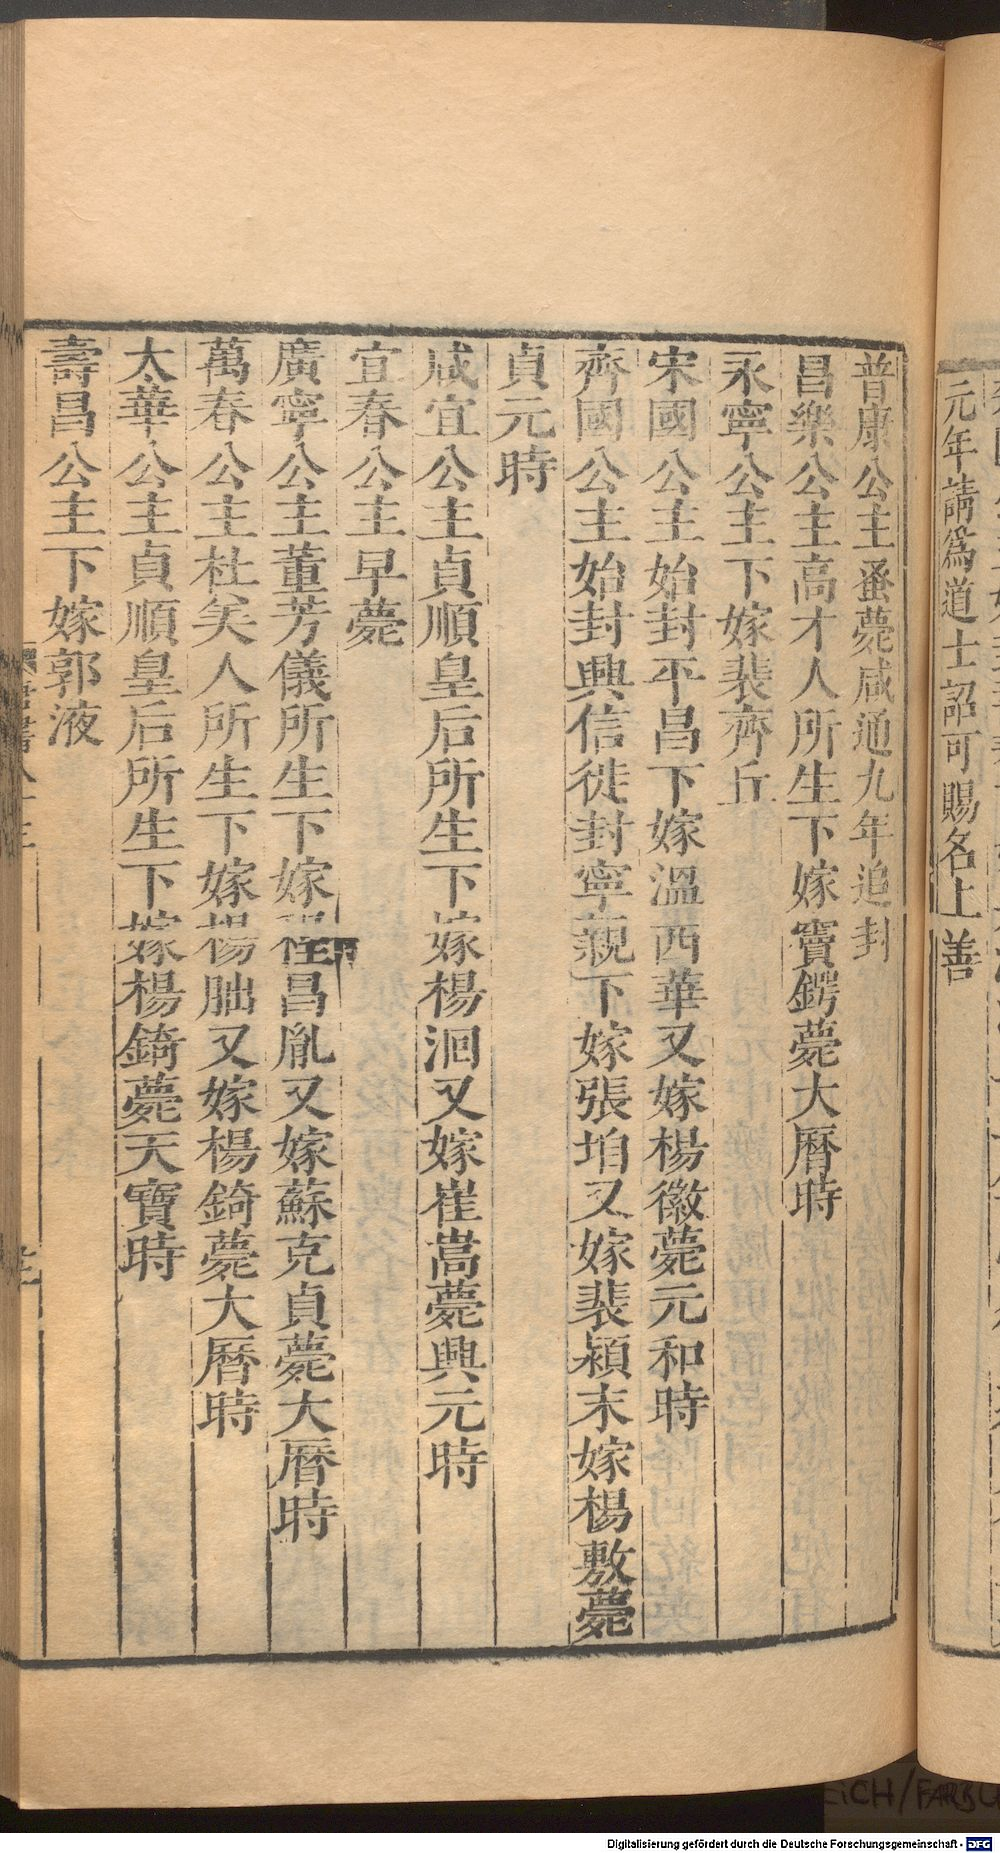 元年請爲道士詔可賜名上善
普康公主蚤薨咸通九年追封
昌樂公主高才人所生下嫁竇鍔薨大曆時
永寧公主下嫁裴齊丘
宋國公主始封平昌下嫁溫西華又嫁楊徽薨元和時
齊國公主始封興信徙封寧親下嫁張垍又嫁裴潁末嫁楊敷薨
貞元時
咸宜公主貞順皇后所生下嫁楊洄又嫁崔嵩薨興元時
宜春公主早薨
廣寧公主董芳儀所生下嫁程昌胤又嫁蘇克貞薨大曆時
萬春公主杜美人所生下嫁楊朏又嫁楊錡薨大曆時
太華公主貞順皇后所生下嫁楊錡薨天寶時
壽昌公主下嫁郭液
Digitalisierung gefördert durch die Deutsche Forschungsgemeinschaft - DFG